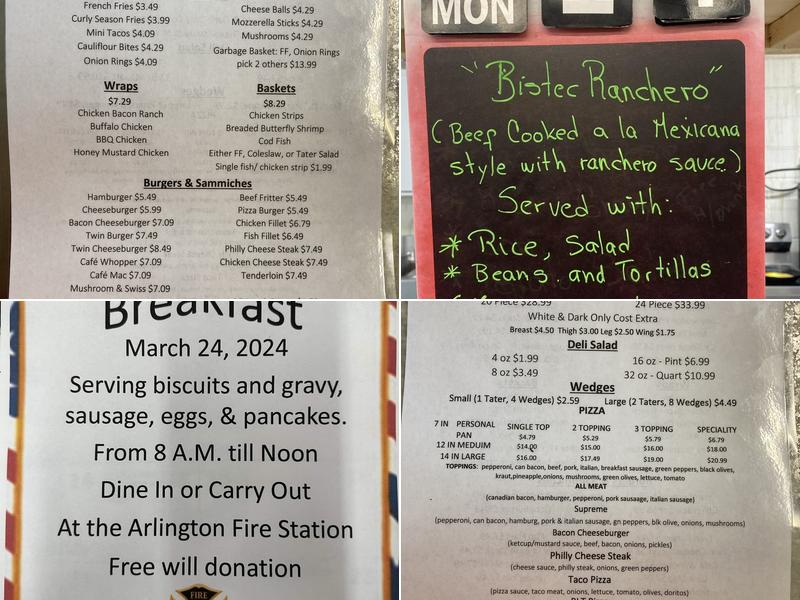 French Fries $3.49
Curly Season Fries $3.99
Mini Tacos $4.09
Cauliflour Bites $4.29
Onion Rings $4.09
Cheese Balls $4.29
Mozzerella Sticks $4.29
Mushrooms $4.29
Garbage Basket: FF, Onion Rings
pick 2 others $13.99
Wraps
$7.29
Chicken Bacon Ranch
Buffalo Chicken
BBQ Chicken
Honey Mustard Chicken
Baskets
$8.29
Chicken Strips
Breaded Butterfly Shrimp
Cod Fish
Either FF, Coleslaw, or Tater Salad
Single fish/ chicken strip $1.99
Burgers & Sammiches
Hamburger $5.49
Cheeseburger $5.99
Bacon Cheeseburger $7.09
Twin Burger $7.49
Twin Cheeseburger $8.49
Café Whopper $7.09
Café Mac $7.09
Mushroom & Swiss $7.09
Beef Fritter $5.49
Pizza Burger $5.49
Chicken Fillet $6.79
Fish Fillet $6.49
Philly Cheese Steak $7.49
Chicken Cheese Steak $7.49
Tenderloin $7.49
MON
"Bistec Ranchero"
(Beef Cooked a la Mexicana
style with ranchero sauce.)
Served with:
* Rice, Salad
* Beans. and Tortillas
Breakfast
March 24, 2024
Serving biscuits and gravy,
sausage, eggs, & pancakes.
From 8 A.M. till Noon
Dine In or Carry Out
At the Arlington Fire Station
Free will donation
FIRE
20 Piece $28.99 24 Piece $33.99
White & Dark Only Cost Extra
Breast $4.50 Thigh $3.00 Leg $2.50 Wing $1.75
Deli Salad
4 oz $1.99 16 oz - Pint $6.99
8 oz $3.49 32 oz - Quart $10.99
Wedges
Small (1 Tater, 4 Wedges) $2.59 Large (2 Taters, 8 Wedges) $4.49
PIZZA
7 IN PERSONAL PAN SINGLE TOP 2 TOPPING 3 TOPPING SPECIALITY
$4.79 $5.29 $5.79 $6.79
12 IN MEDUIM $14.00 $15.00 $16.00 $18.00
14 IN LARGE $16.00 $17.49 $19.00 $20.99
TOPPINGS: pepperoni, can bacon, beef, pork, italian, breakfast sausage, green peppers, black olives,
kraut,pineapple,onions, mushrooms, green olives, lettuce, tomato
ALL MEAT
(canadian bacon, hamburger, pepperoni, pork sausaage, italian sausage)
Supreme
(pepperoni, can bacon, hamburg, pork & italian sausage, gn peppers, blk olive, onions, mushrooms)
Bacon Cheeseburger
(ketcup/mustard sauce, beef, bacon, onions, pickles)
Philly Cheese Steak
(cheese sauce, philly steak, onions, green peppers)
Taco Pizza
(pizza sauce, taco meat, onions, lettuce, tomato, olives, doritos)